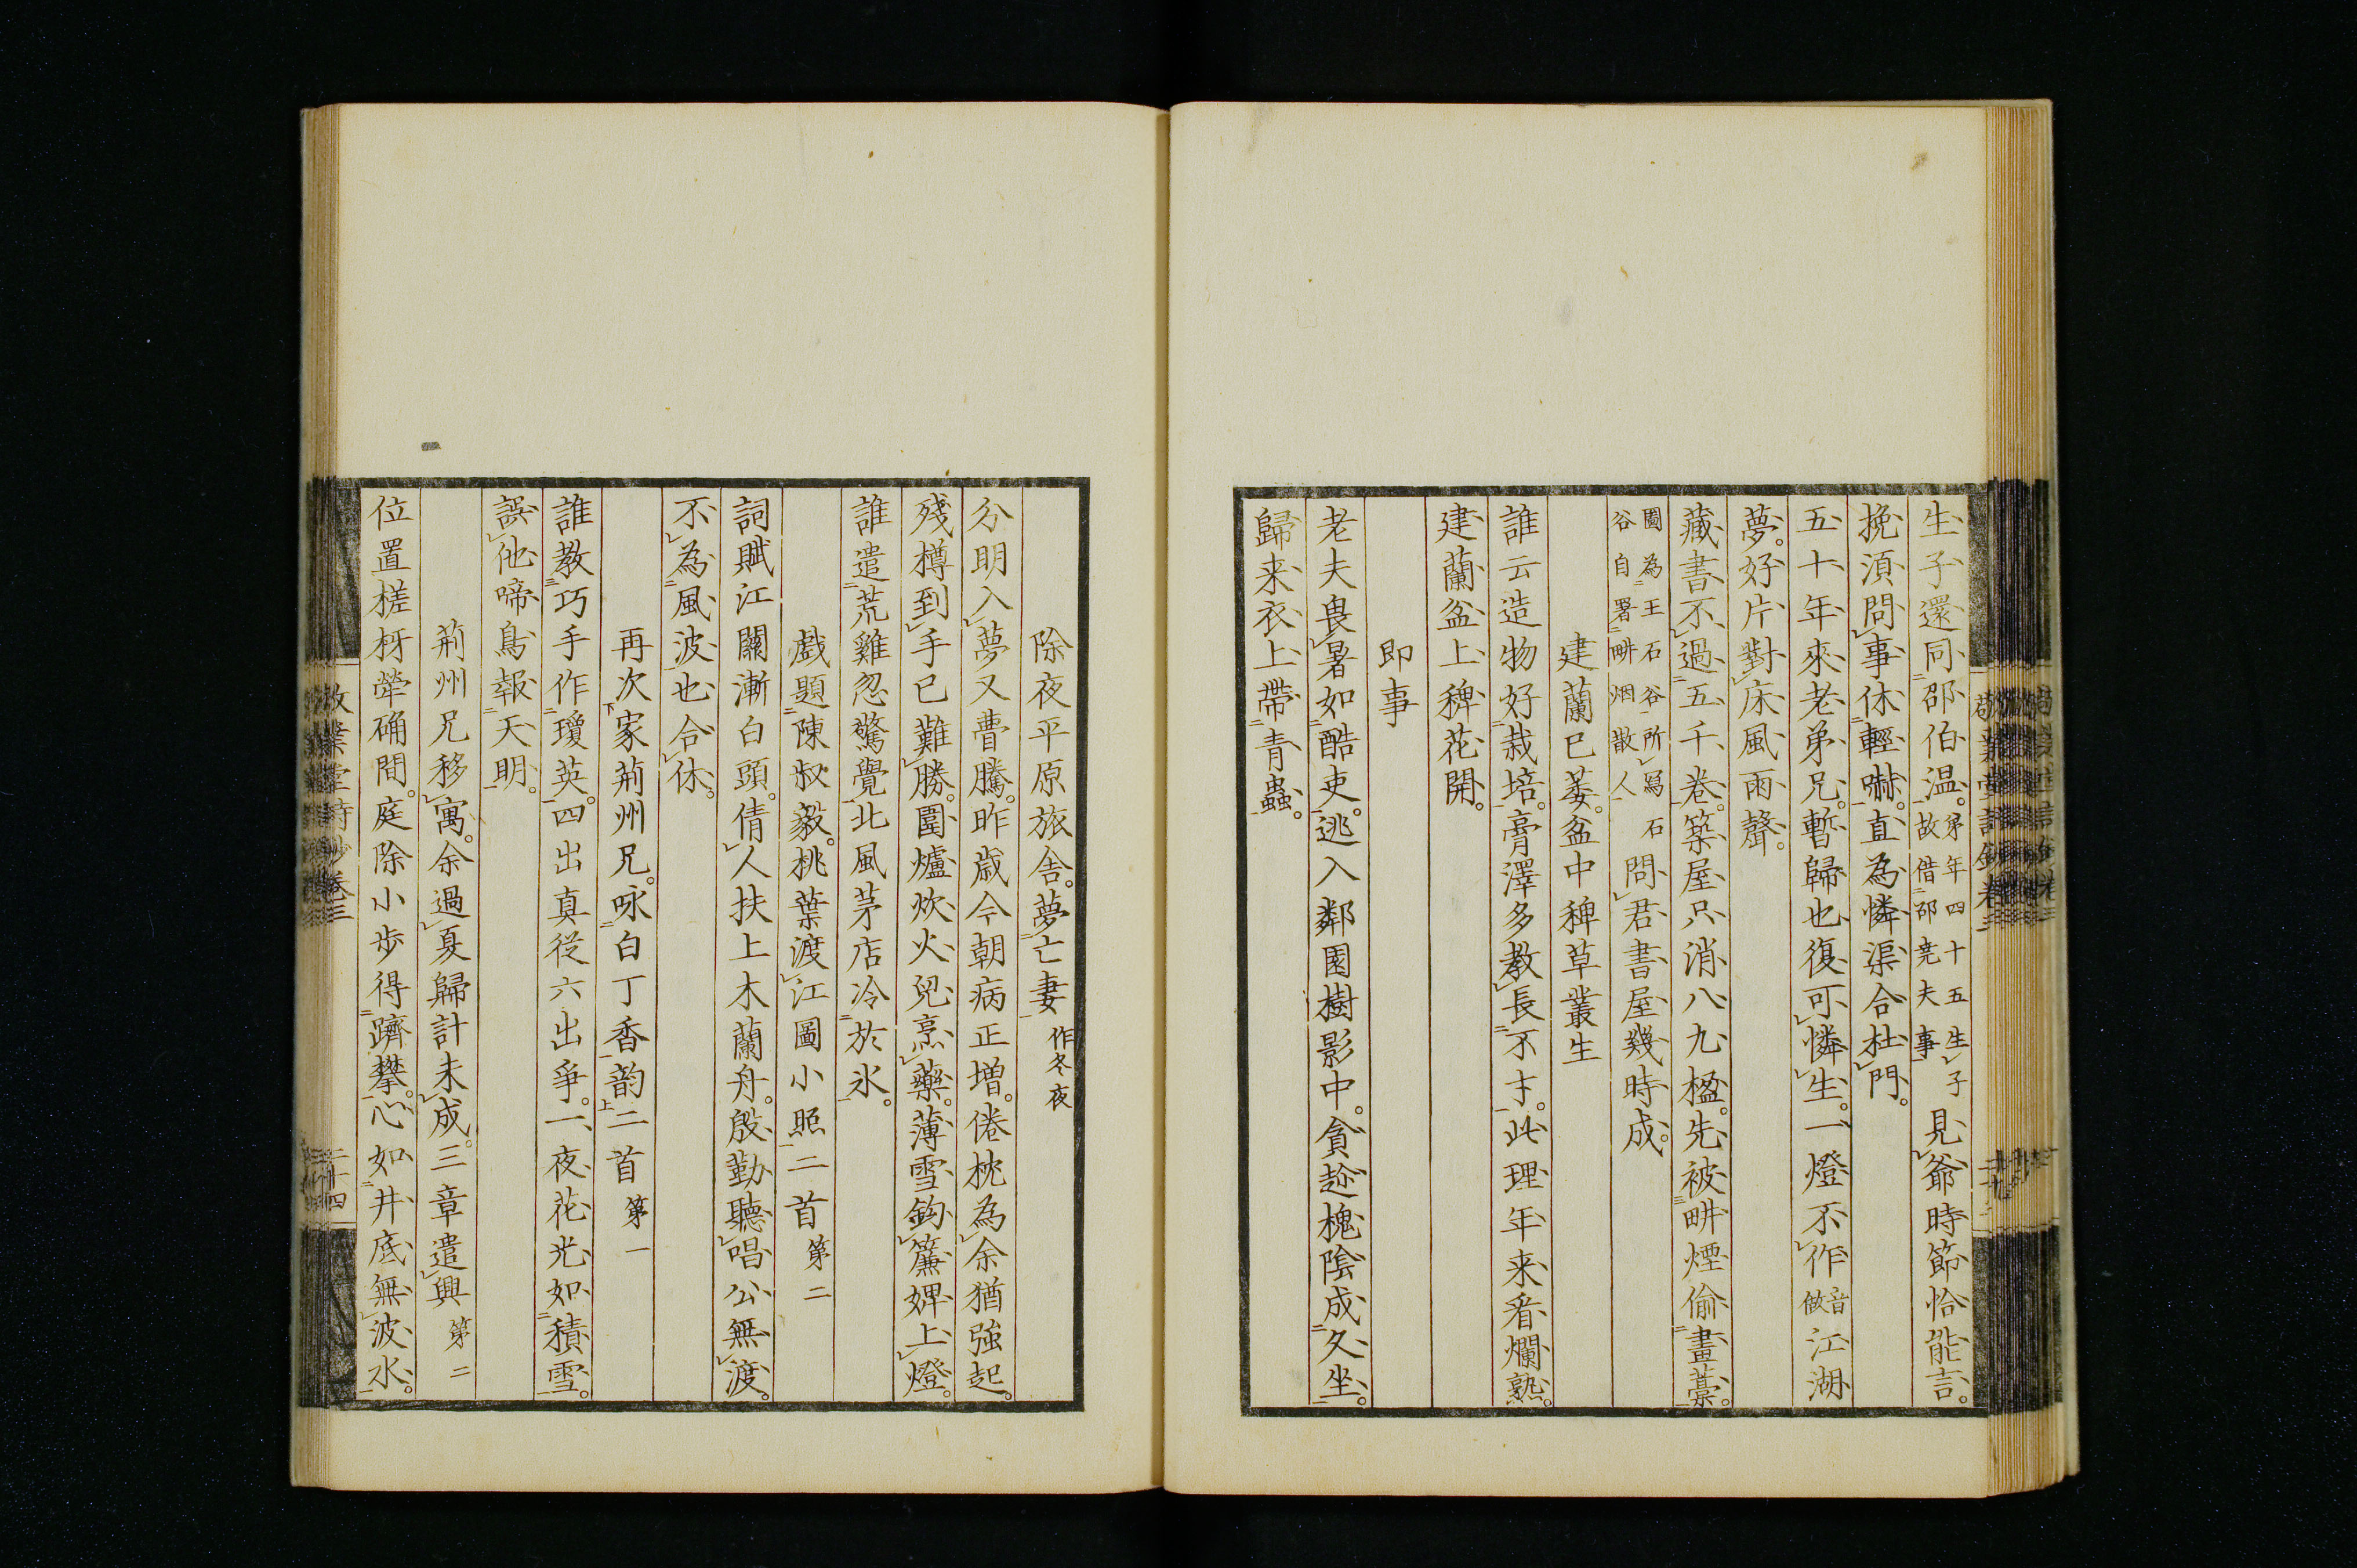 生子還同邵伯温。弟年四十五生子故借邵尭夫事見爺時節恰能言。
挽湏問事休輕嚇。直為憐渠合杜門。
五十年來老弟兄。暫歸也復可憐生。一燈不作音做江湖
夢。好片對床風雨聲。
藏書不過五千卷。築屋只消八九楹。先被畊煙偷畫藁。
圖為王石谷所寫石谷自署畊烟散人問君書屋幾時成。
建蘭已萎。盆中稗草叢生
誰云造物好栽培。膏澤多教長不才。此理年来看爛熟。
建蘭盆上稗花開。
即事
老夫畏暑如酷吏。逃入鄰園樹影中。貪趁槐陰成久坐。
歸来衣上帶青蟲。
除夜平原旅舎。夢亡妻作冬夜
分明入夢又瞢騰。昨歳今朝病正増。倦枕為余猶強起。
残樽到手已難勝。圍爐炊火兒烹藥。薄雪鈎簾婢上燈。
誰遣荒雞忽驚覺北風茅店冷於氷。
戲題陳叔毅。桃葉渡江圖小照二首第二
詞賦江關漸白頭。倩人扶上木蘭舟。殷勤聽唱公無渡。
不為風波也合休。
再次家荊州兄。咏白丁香韵二首第一
誰教巧手作瓊英。四出真従六出爭。一夜花光如積雪。
誤他啼鳥報天明。
荊州兄移寓。余過夏歸計未成。三章遣興第二
位置槎枒犖确間。庭除小步得躋攀。心如井底無波水。
敬業堂詩鈔卷三 二十四